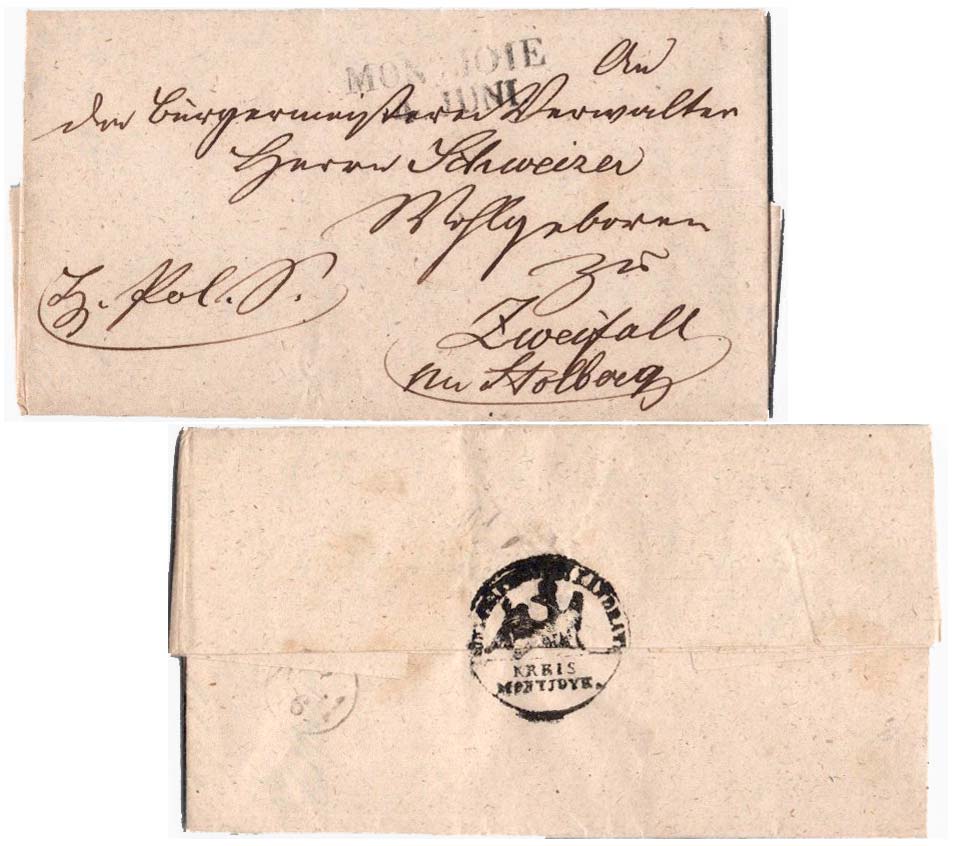 MONTJOIE
JUNI
An
den Bürgermeisterei Verwalter
Herrn Schweizer
Wohlgeboren
zu
H. Pol. S.
Zweifall
bei Stolberg
KREIS
MONTJOYE.